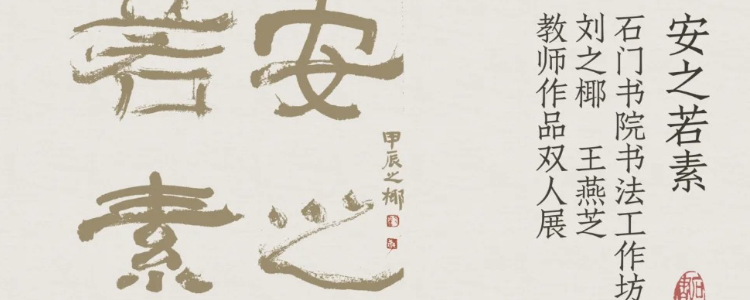 安之若素
石门书院书法工作坊
刘之椰 王燕芝
教师作品双人展
甲辰之椰
安之
若素